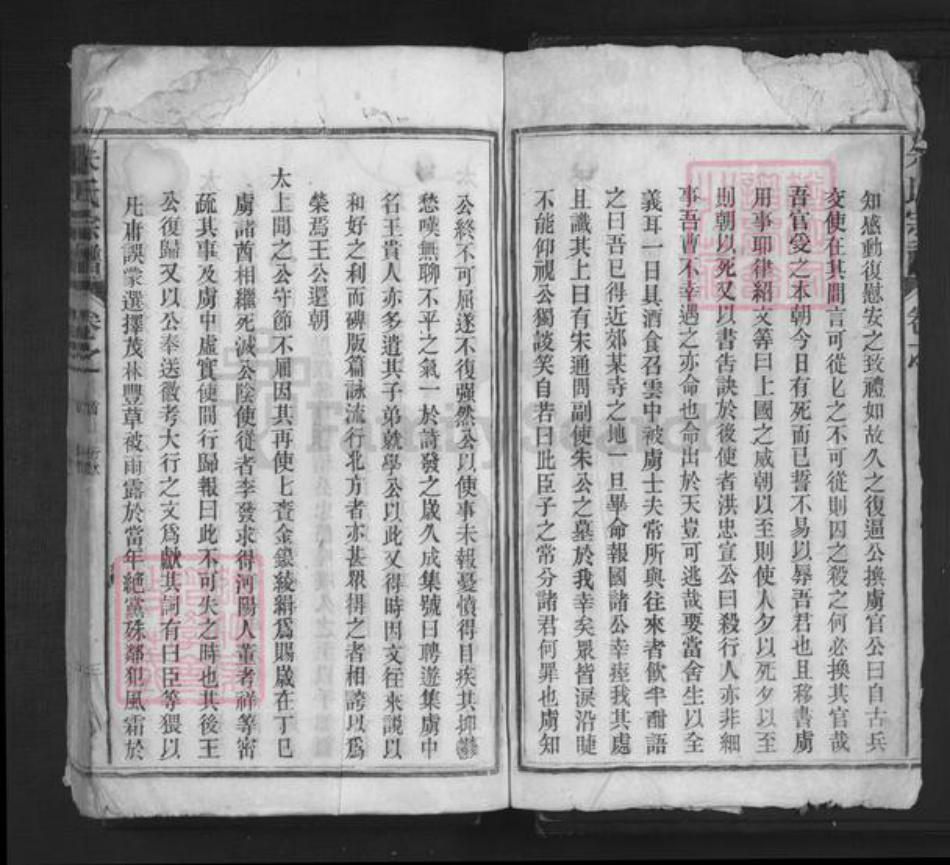 知感動復慰安之致禮如故久之復逼公換虜官公曰自古兵
交使在其間言可從從之不可從則囚之殺之何必換其官哉
吾官受之本朝今日有死而已誓不易以辱吾君也且移書虜
用事耶律紹文等曰上國之威朝以至則使人夕以死夕以至
則朝以死又以書告訣於後使者洪忠宣公曰殺行人亦非細
事吾曹不幸遇之亦命也命出於天豈可逃哉要當舍生以全
義耳一日具酒食召雲中被虜士夫常所與往來者飲半酣語
之曰吾已得近郊某寺之地一旦畢命報國諸公幸瘞我其處
且識其上曰有宋通問副使朱公之墓於我幸矣眾皆淚沿睫
不能仰視公獨談笑自若曰此臣子之常分諸君何罪也虜知
公終不可屈遂不復强然公以使事未報憂憤得目疾其抑鬱
愁嘆無聊不平之氣一於詩發之歲久成集號曰聘遊集虜中
名王貴人亦多遣其子弟就學公以此又得時因文往來說以
和好之利而碑版篇詠流行北方者亦甚眾得之者相誇以爲
榮焉王公還朝
太上聞之公守節不屈因其再使上賫金銀綾絹爲賜歲在丁巳
虜諸酋相繼死滅公陰使從者李發求得河陽人董者祥等密
疏其事及虜中虛實使間行歸報曰此不可失之時也其後王
公復歸又以公奉送徽考大行之文爲獻其詞有曰臣等猥以
凡庸誤蒙選擇茂林豐草被雨露於當年絕黨殊鄰犯風霜於
朱氏宗譜
卷之